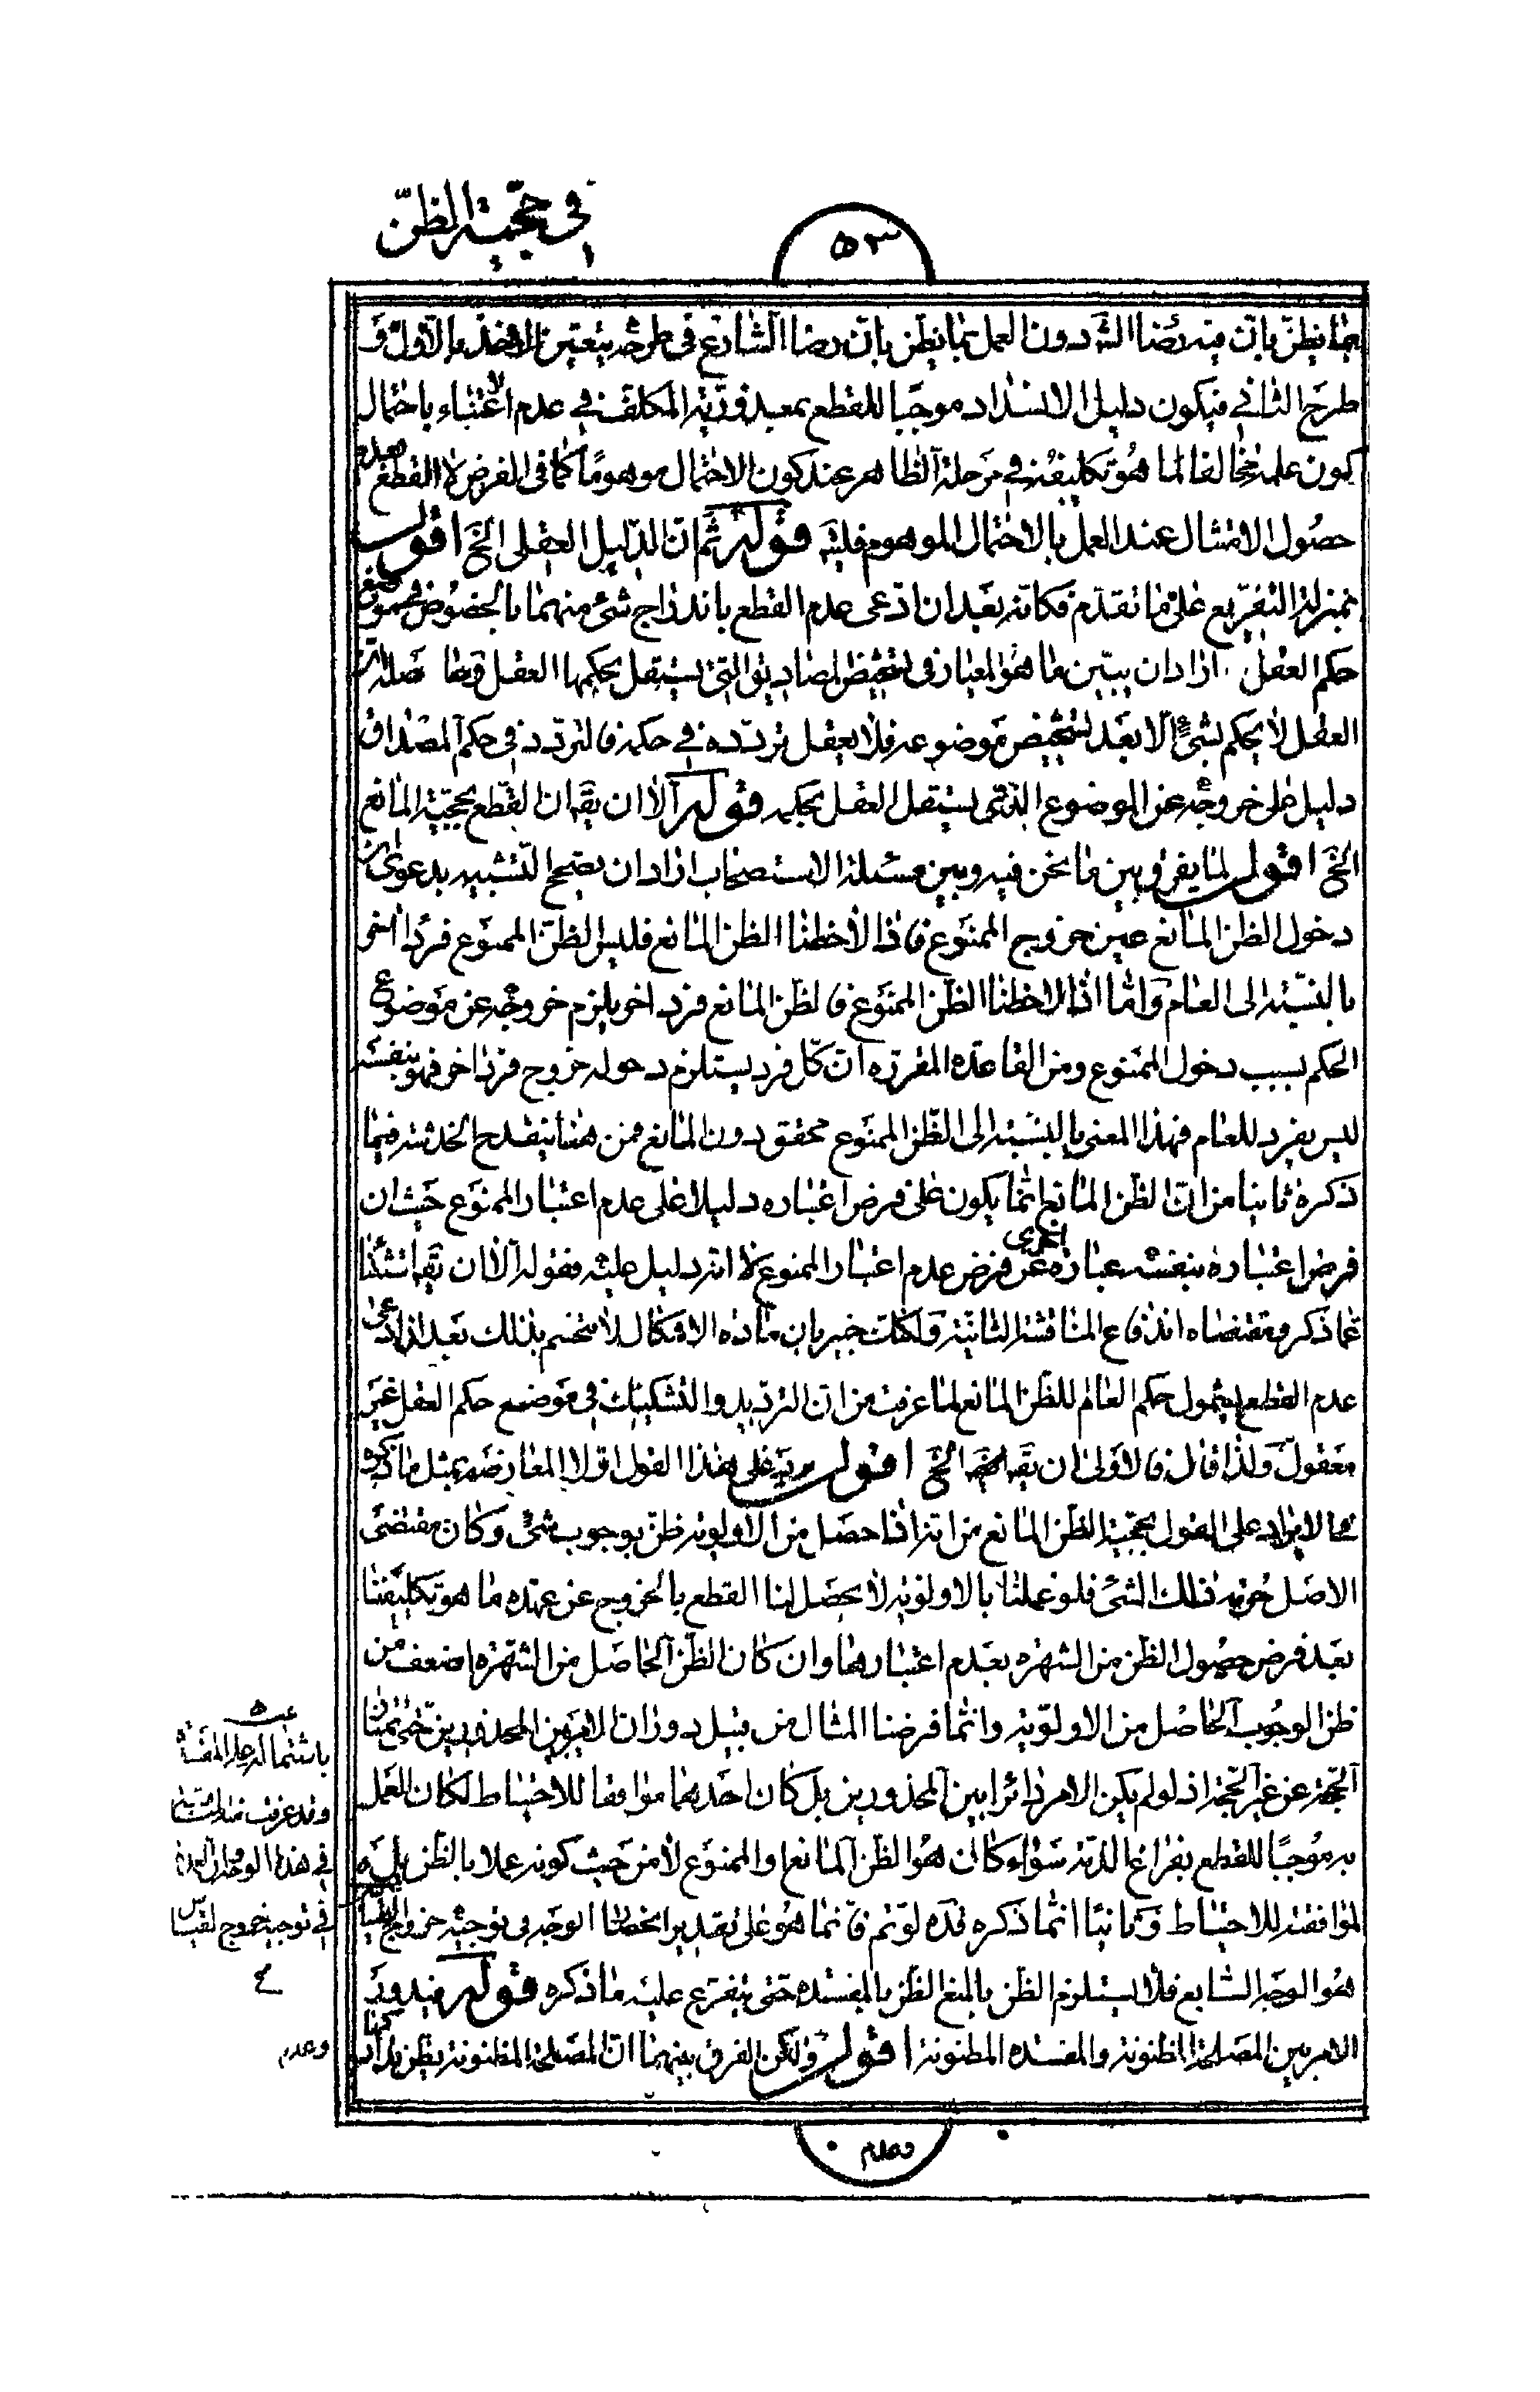 في حجية الظن
٥٣
بما يظن بان فيه رضا الشه دون العمل بما يظن بان رضا الشارع في طرحه يتعين الاخذ بالاول و
طرح الثاني فيكون دليل الانسداد موجبا للقطع بمعذورية المكلف في عدم الاعتناء باحتمال
كون عمله مخالفا لما هو تكليفه في مرحلة الظاهر عند كون الاحتمال موهوما كما في الفرض لا القطع بعدم
حصول الامتثال عند العمل بالاحتمال الموهوم فليته قوله ثم ان الدليل العقلي الخ اقول
بمنزلة التفريع على ما تقدم فكانه بعد ان ادعى عدم القطع باندراج شئ منهما بالخصوص في موضوع
حكم العقل اراد ان يبين ما هو المعيار في تشخيص المصاديق التي يستقل بحكمها العقل
العقل لا يحكم بشئ الا بعد تشخيص موضوعه فلا يعقل تردده في حكمه فالتردد في حكم المصداق
دليل على خروجه عن الموضوع الذي يستقل العقل بحكمه قوله الا ان يقه ان القطع بحجية المانع
الخ اقول لما يفرق بين ما نحن فيه وبين مسئلة الاستصحاب اراد ان يصحح التشبيه بدعوى ان
دخول الظن المانع عين خروج الممنوع فاذا لاحظنا الظن المانع فليس لظن الممنوع فردا اخر
بالنسبة الى العام واما اذا لاحظنا الظن الممنوع فالظن المانع فرد اخر يلزم خروجه عن موضوع
الحكم بسبب دخول الممنوع ومن القاعدة المقررة ان كل فرد يستلزم دخوله خروج فرد اخر فهو بنفسه
ليس بفرد للعام فهذا المعنى بالنسبة الى الظن الممنوع محقق دون المانع فمن هنا ينقدح الخدشة فيما
ذكره ثانيا من ان الظن المانع انما يكون على فرض اعتباره دليلا على عدم اعتبار الممنوع حيث ان
فرض اعتباره بنفسه عبارة اخرى عن فرض عدم اعتبار الممنوع لا انه دليل عليه فقوله الا ان يقه استثناء
عما ذكره ومقتضاه اندفاع المناقشة الثانية ولكنك خبير بان مادة الاشكال لا تنحسم بذلك بعد ان ادعى
عدم القطع بشمول حكم العام للظن المانع لما عرفت من ان الترديد والتشكيك في موضع حكم العقل غير
معقول ولذا قال فالاولى ان يقه الخ اقول يرد على هذا القول اولا المعارضة بمثل ما ذكره
في الايراد على القول بحجية الظن المانع من انه اذا حصل من الاولوية ظن بوجوب شئ وكان مقتضى
الاصل حرمة ذلك الشئ فلو عملنا بالاولوية لا يحصل لنا القطع بالخروج عن عهدة ما هو تكليفنا
بعد فرض حصول الظن من الشهرة بعدم اعتبارها وان كان الظن الحاصل من الشهرة اضعف من
ظن الوجوب الحاصل من الاولوية وانما فرضنا المثال من قبيل دوران الامر بين المحذورين حتى يمتاز
الحجة عن غير الحجة اذ لو لم يكن الامر دائرا بين المحذورين بل كان احدهما موافقا للاحتياط لكان العمل
به موجبا للقطع بفراغ الذمة سواء كان هو الظن المانع او الممنوع لا من حيث كونه عملا بالظن بل
لموافقته للاحتياط وثانيا انما ذكره قده لو تم فانما هو على تقدير انحصار الوجه في توجيه خروج القياس
هو الوجه السابع فلا يستلزم الظن بالمنع الظن بالمفسدة حتى يتفرع عليه ما ذكره قوله فيدور
الامر بين المصلحة المظنونة والمفسدة المظنونة اقول ولكن الفرق بينهما ان المصلحة المظنونة يظن
باشتماله على المفسدة
وقد عرفت
في هذا الوجه
في توجيه خروج القياس
وعدم